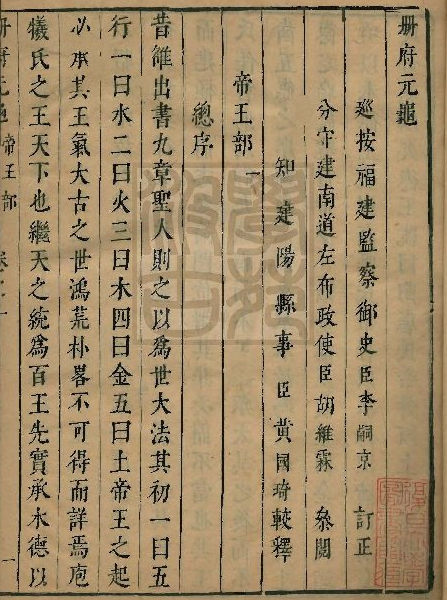 册府元龜
廵按福建監察御史臣李嗣京 訂正
分守建南道左布政使臣胡維霖 叅閱
知建陽縣事臣黃國琦較釋
帝王部一
總序
昔雒出書九章聖人則之以為世大法其初一曰五
行一曰水二曰火三曰木四曰金五曰土帝王之起
必承其王氣大古之世鴻荒朴畧不可得而詳焉庖
犧氏之王天下也繼天之統為百王先實承木德以
册府元龜 帝王部 卷之一 一